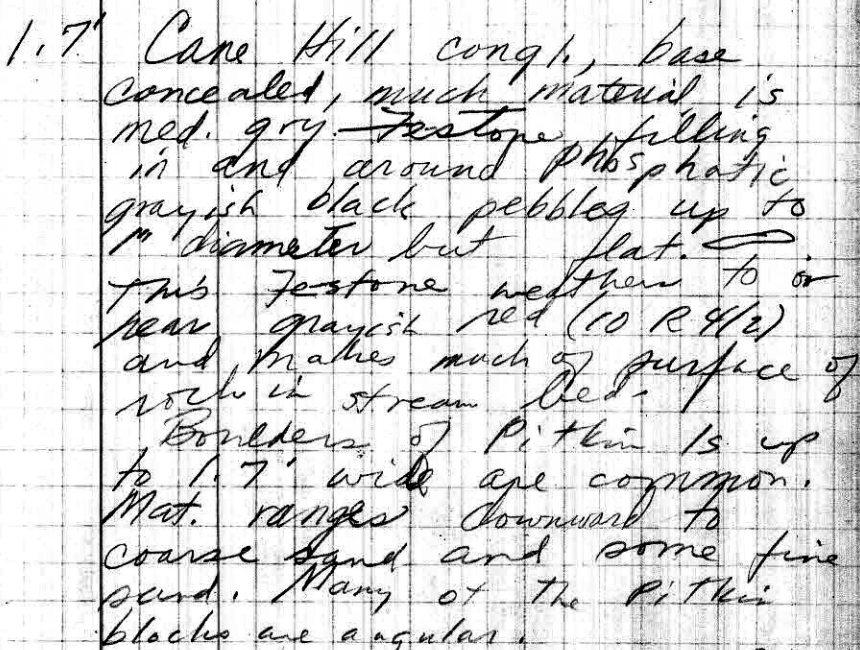 1.7' Cane Hill congl., base
concealed, much material is
med. gry. Festone filling
in and around phosphatic
grayish black pebbles up to
1" diameter but flat.
This Festone weathers to or
near grayish red (10 R 4/2)
and makes much of surface of
rock in stream bed.
Boulders of Pitkin ls up
to 1.7' wide are common.
Mat. ranges downward to
coarse sand and some fine
sand. Many of the Pitkin
blocks are angular.